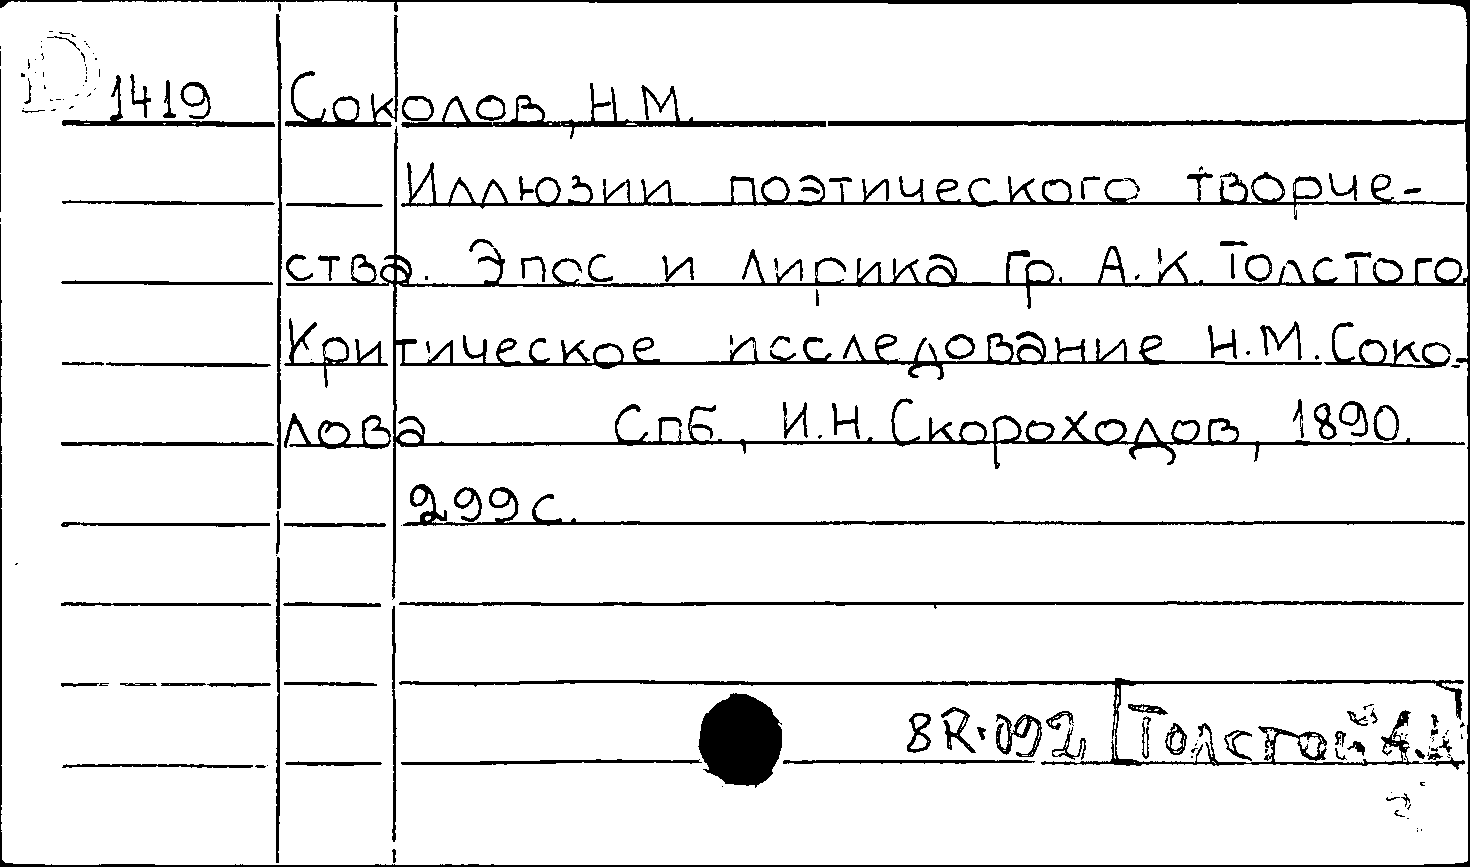 D 1419 Соколов, Н.М.
Иллюзии поэтического творче-
ства. Эпос и лирика гр. А.К. Толстого.
Критическое исследование Н.М.Соко-
лова Спб., И.Н.Скороходов, 1890.
299 с.
8R.092 [Толстой А.К